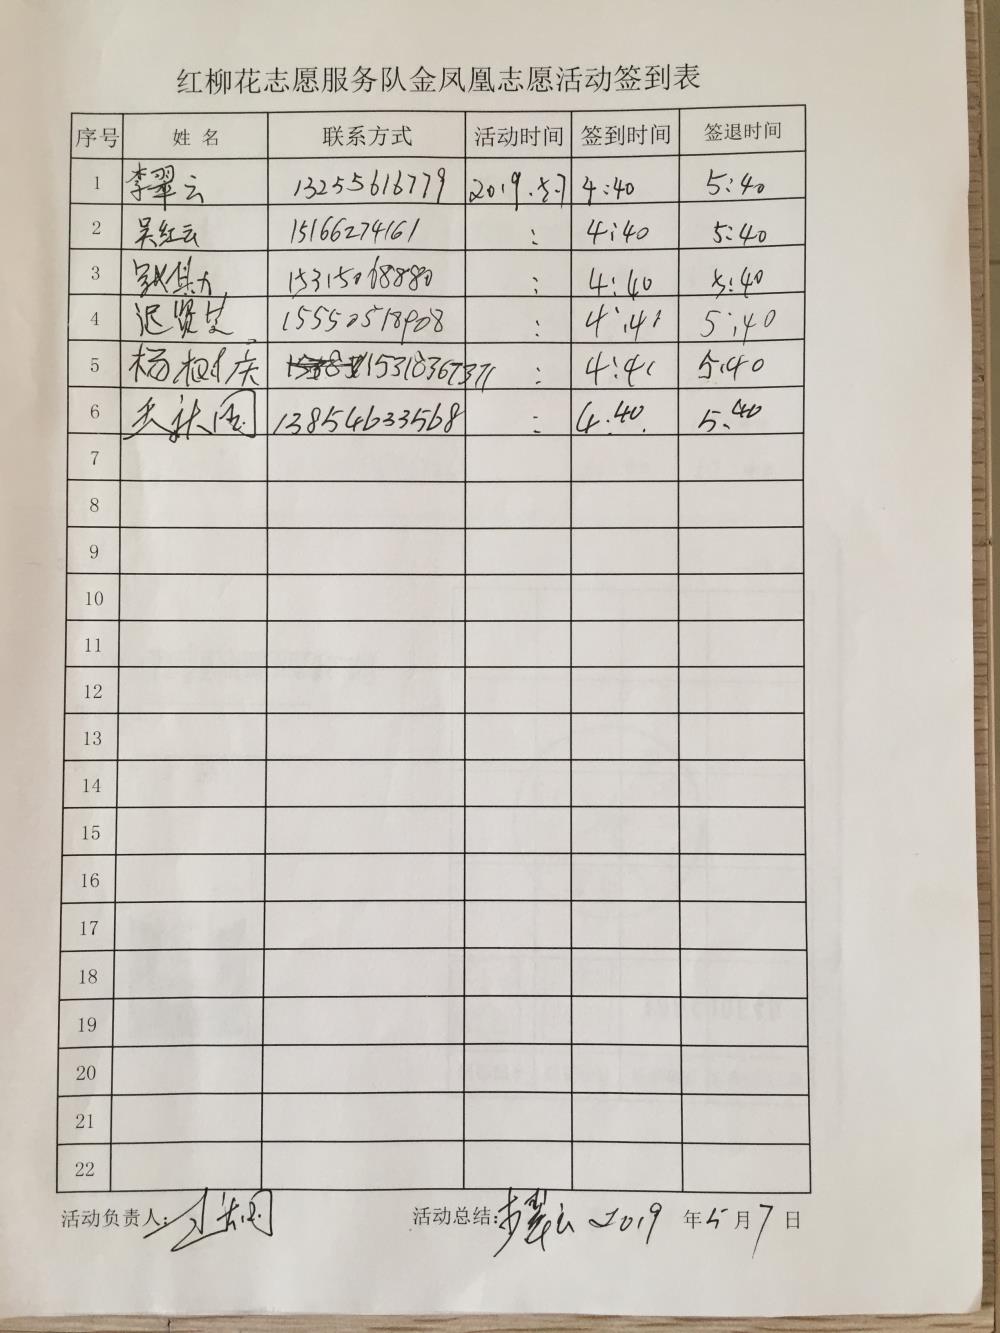 红柳花志愿服务队金凤凰志愿活动签到表
序号 姓名 联系方式 活动时间 签到时间 签退时间
1 李翠云 13255616779 2019.5.7 4:40 5:40
2 吴红云 15166274161 : 4:40 5:40
3 15315068880 : 4:40 5:40
4 迟贤芝 15550518908 : 4:41 5:40
5 杨相庆 15318367371 : 4:41 5:40
6 13854633568 : 4:40 5:40
7
8
9
10
11
12
13
14
15
16
17
18
19
20
21
22
活动负责人: 活动总结: 李翠云 2019 年 5 月 7 日